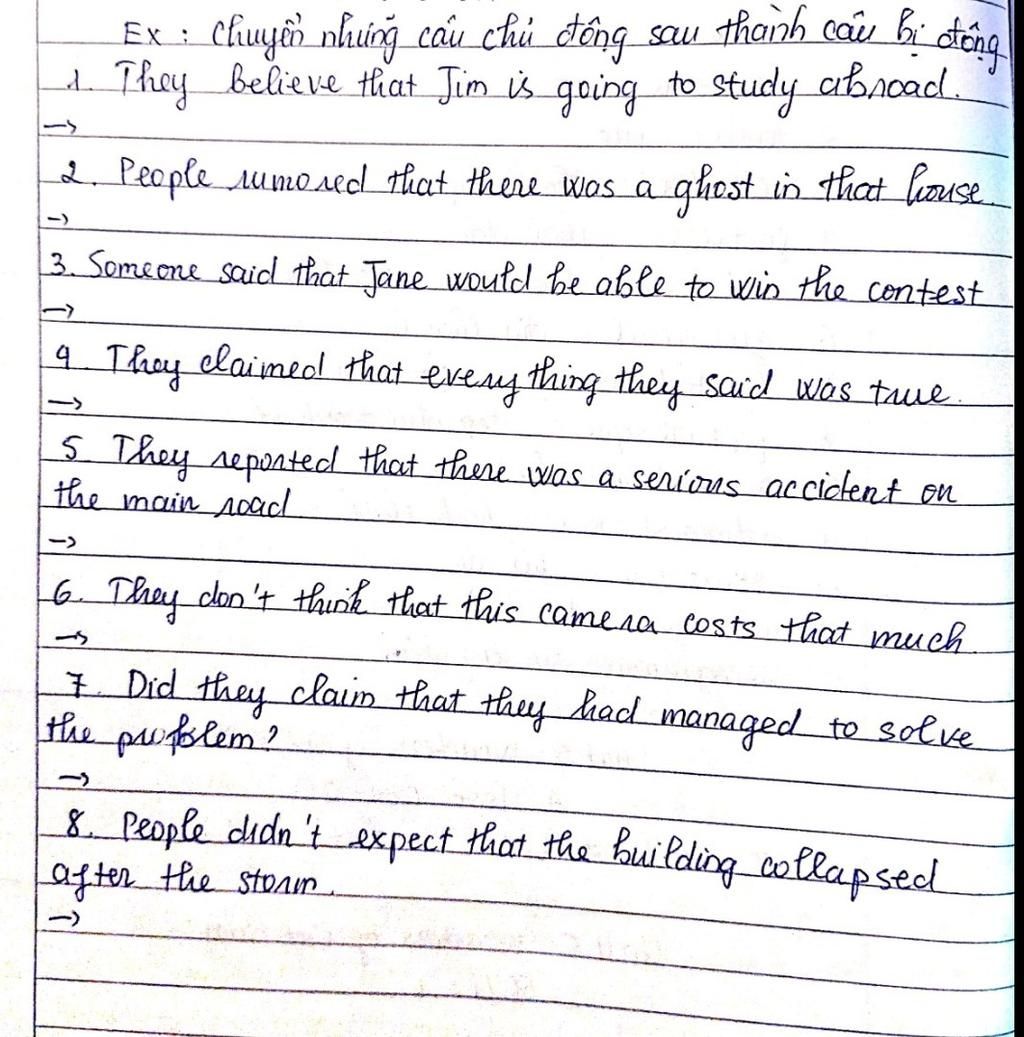 Ex : Chuyển những câu chủ động sau thành câu bị động
1. They believe that Jim is going to study abroad.
→
2. People rumored that there was a ghost in that house.
→
3. Someone said that Jane would be able to win the contest
→
4. They claimed that everything they said was true.
→
5. They reported that there was a serious accident on
the main road
→
6. They don't think that this camera costs that much.
→
7. Did they claim that they had managed to solve
the problem?
→
8. People didn't expect that the building collapsed
after the storm.
→